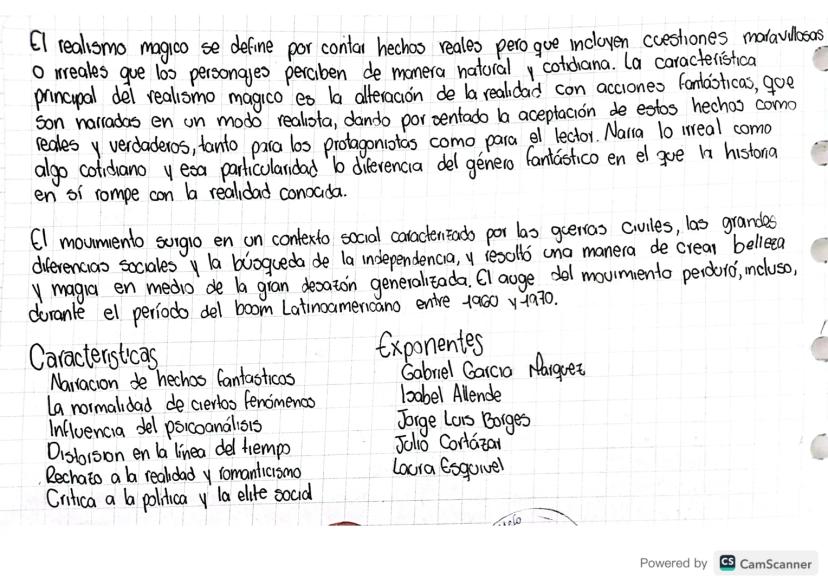 El realismo magico se define por contar hechos reales pero que incluyen cuestiones maravillosas
o irreales que los personajes perciben de manera natural y cotidiana. La característica
principal del realismo magico es la alteración de la realidad con acciones fantásticas, que
son narradas en un modo realista, dando por sentado la aceptación de estos hechos como
reales y verdaderos, tanto para los protagonistas como para el lector. Narra lo irreal como
algo cotidiano y esa particularidad lo diferencia del género fantástico en el que la historia
en sí rompe con la realidad conocida.
El movimiento surgio en un contexto social caracterizado por las guerras civiles, las grandes
diferencias sociales y la búsqueda de la independencia, y resultó una manera de crear belleza
y magia en medio de la gran desazón generalizada. El auge del movimiento perduró, incluso,
durante el período del boom Latinoamericano entre 1960 y 1970.
Caracteristicas
Narracion de hechos fantasticos
La normalidad de ciertos fenómenos
Influencia del psicoanálisis
Distorsion en la línea del tiempo
Rechazo a la realidad y romanticismo
Critica a la politica y la elite social
Exponentes
Gabriel Garcia Marquez
Isabel Allende
Jorge Luis Borges
Julio Cortázar
Laura Esquivel
Powered by CS CamScanner